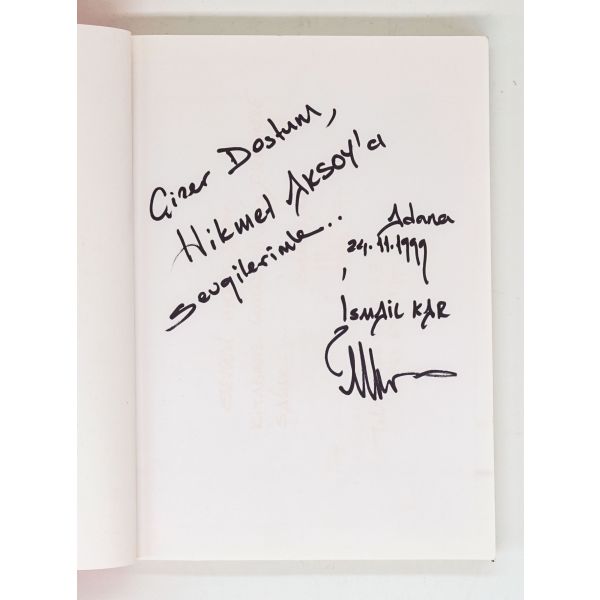 Çizer Dostum,
Hikmet AKSOY'a
sevgilerimle..
Adana
24.11.1999
İSMAİL KAR